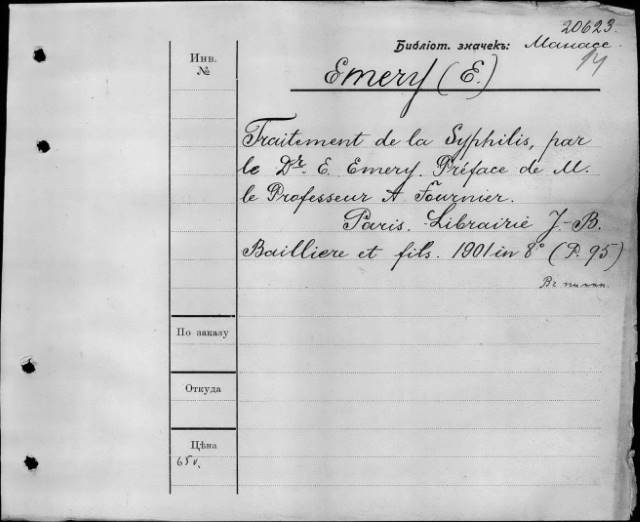 20623.
Библiот. значекъ:
14
Инв.
№
Emery (E.)
Traitement de la Syphilis, par
le Dr. E. Emery. Préface de M.
le Professeur A Fournier.
Paris. Librairie J.-B.
Bailliere et fils. 1901 in 8° (P. 95)
По заказу
Откуда
Цѣна
65